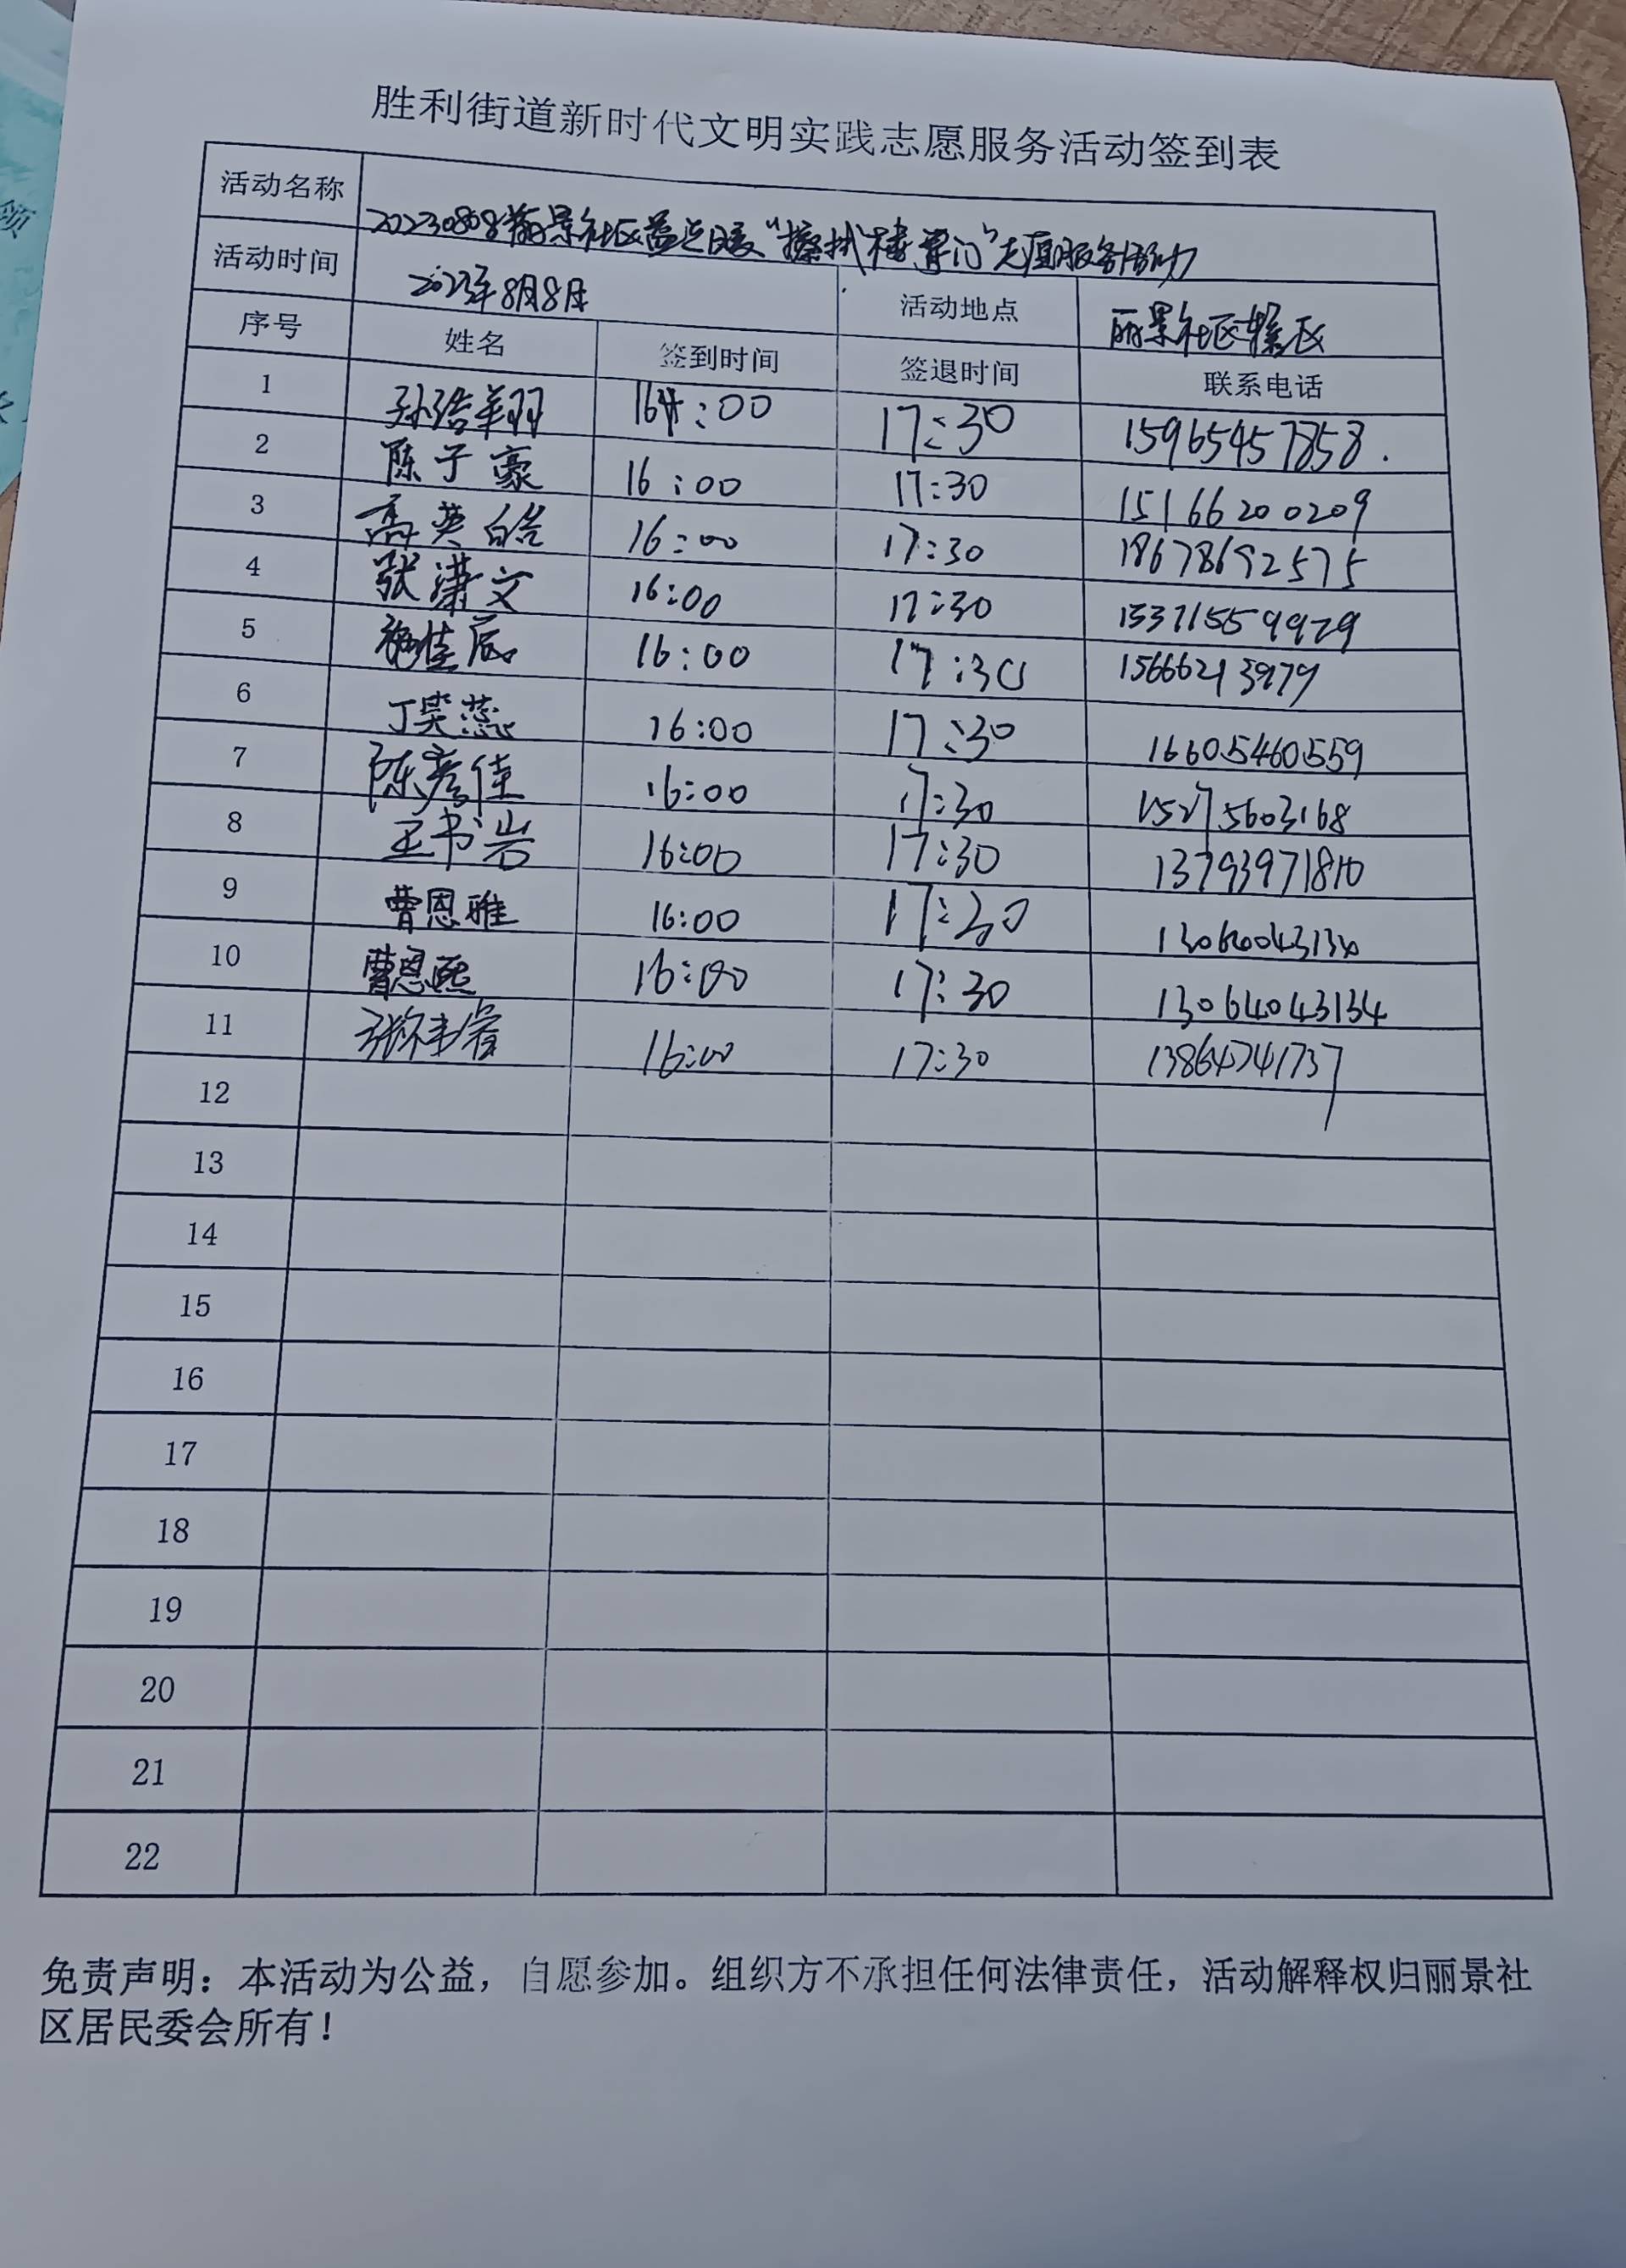 胜利街道新时代文明实践志愿服务活动签到表
活动名称 20230808丽景社区益点暖“擦拭楼单门”志愿服务活动
活动时间 2023年8月8日 活动地点 丽景社区辖区
序号 姓名 签到时间 签退时间 联系电话
1 孙浩羊羽 16:00 17:30 15965457858.
2 陈子豪 16:00 17:30 15166200209
3 高英皓 16:00 17:30 18678692575
4 张潇文 16:00 17:30 15371559979
5 佳辰 16:00 17:30 15666213979
6 丁昊蕊 16:00 17:30 16605460559
7 陈彦佳 16:00 17:30 15275603168
8 王书岩 16:00 17:30 13793971810
9 曹恩雅 16:00 17:30
10 曹恩熙 16:00 17:30 13064043134
11 16:00 17:30 13864741737
12
13
14
15
16
17
18
19
20
21
22
免责声明：本活动为公益，自愿参加。组织方不承担任何法律责任，活动解释权归丽景社
区居民委会所有！